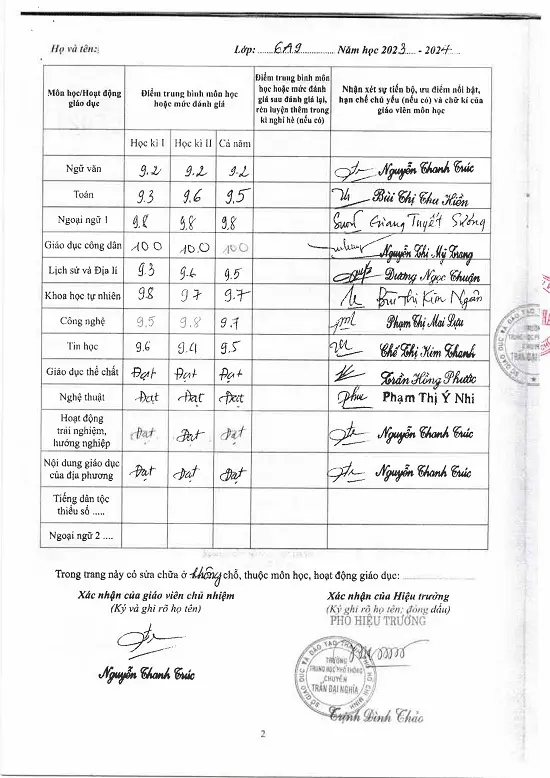 Họ và tên: Lớp: 6A9 Năm học 2023 - 2024
Môn học/Hoạt động giáo dục
Điểm trung bình môn học hoặc mức đánh giá
Điểm trung bình môn học hoặc mức đánh giá sau đánh giá lại, rèn luyện thêm trong kì nghỉ hè (nếu có)
Nhận xét sự tiến bộ, ưu điểm nổi bật, hạn chế chủ yếu (nếu có) và chữ kí của giáo viên môn học
Học kì I Học kì II Cả năm
Ngữ văn 9.2 9.2 9.2 Nguyễn Thanh Trúc
Toán 9.3 9.6 9.5 Bùi Thị Thu Hiền
Ngoại ngữ 1 9.8 9.8 9.8 Giang Tuyết Sương
Giáo dục công dân 10.0 10.0 10.0 Nguyễn Thị Mỹ Trang
Lịch sử và Địa lí 9.3 9.6 9.5 Dương Ngọc Thuận
Khoa học tự nhiên 9.8 9.7 9.7 Bùi Thị Kim Ngân
Công nghệ 9.5 9.8 9.7 Phạm Thị Mai Lựu
Tin học 9.6 9.4 9.5 Chế Thị Kim Thanh
Giáo dục thể chất Đạt Đạt Đạt Trần Hồng Phước
Nghệ thuật Đạt Đạt Đạt Phạm Thị Ý Nhi
Hoạt động trải nghiệm, hướng nghiệp Đạt Đạt Đạt Nguyễn Thanh Trúc
Nội dung giáo dục của địa phương Đạt Đạt Đạt Nguyễn Thanh Trúc
Tiếng dân tộc thiểu số .....
Ngoại ngữ 2 ....
Trong trang này có sửa chữa ở không chỗ, thuộc môn học, hoạt động giáo dục:
Xác nhận của giáo viên chủ nhiệm
(Ký và ghi rõ họ tên)
Nguyễn Thanh Trúc
Xác nhận của Hiệu trưởng
(Ký ghi rõ họ tên; đóng dấu)
PHÓ HIỆU TRƯỞNG
SỞ GIÁO DỤC VÀ ĐÀO TẠO THÀNH PHỐ HỒ CHÍ MINH
TRƯỜNG
TRUNG HỌC PHỔ THÔNG
CHUYÊN
TRẦN ĐẠI NGHĨA
Trịnh Đình Thảo
2